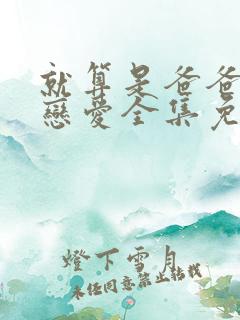 就算是爸爸
戀愛全集免
燈下雪月
未經同意禁止轉載